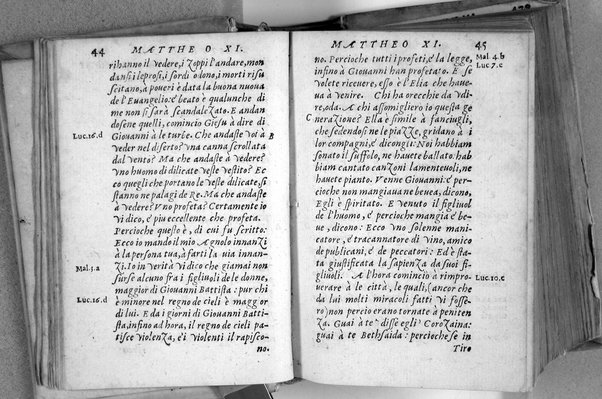 44 MATTHEO XI.
rihanno il vedere, i zoppi l'andare, mon
dansi i leprosi, i sordi odono, i morti risu
scitano, a poueri è data la buona nuoua
de l'Euangelio: è beato è qualunche di
me non si sarà scandalezato. E andan
dosene quelli, cominciò Giesu à dire di
Luc.16.d Giouanni à le turbe. Che andaste voi à B
veder nel diserto? vna canna scrollata
dal vento? Ma che andaste à vedere?
vno huomo di dilicate veste vestito? Ec
co quegli che portano le veste delicate, si
stanno ne palagi de Re. Ma che andaste
à vedere? Vno profeta? Certamente io
vi dico, è piu eccellente che profeta.
Percioche questo è, di cui su scritto:
Ecco io mando il mio Agnolo innanzi
à la persona tua, à farti la uia innan-
Mal.3.a zi. Io in verità vi dico che giamai non
surse alcuno fra i figliuoli de le donne,
maggior di Giouanni Batista: pur chi
Luc.16.d è minore nel regno de cieli è maggior
di lui. E da i giorni di Giouanni Batti-
sta, infino ad hora, il regno de cieli pa-
tisce violenza, è i violenti il rapisco-
no.
MATTHEO XI. 45
no. Percioche tutti i profeti, è la legge, Mal.4.b
infino à Giouanni han profetato. E se Luc.7.c
volete riceuere, esso è l'Elia che haue-
ua à venire. Chi ha orecchie da vdi-
re, oda. A chi assomigliero io questa ge
nerazione? Ella è simile à fanciugli,
che sedendosi ne le piazze, gridano à i
lor compagni, è dicongli: Noi habbiam
sonato il suffolo, ne hauete ballato: hab
biam cantato canzoni lamenteuoli, ne
hauete pianto. Venne Giouanni: è per-
cioche non mangiaua ne beuea, dicono,
Egli è spiritato. E venuto il figliuol
de l'huomo, è percioche mangia è be-
ue, dicono: Ecco vno solenne mani-
catore, è tracannator di vino, amico
de publicani, è de peccatori: Ed è sta-
ta giustificata la sapienza da suoi fi-
gliuoli. A l'hora cominciò à rimpro- Luc.10.c
uerare à le città, le quali, (ancor che
da lui molti miracoli fatti vi fosse-
ro) non perciò erano tornate à peniten
za. Guai à te disse egli Corozaina:
guai à te Bethsaida: percioche se in
Tiro